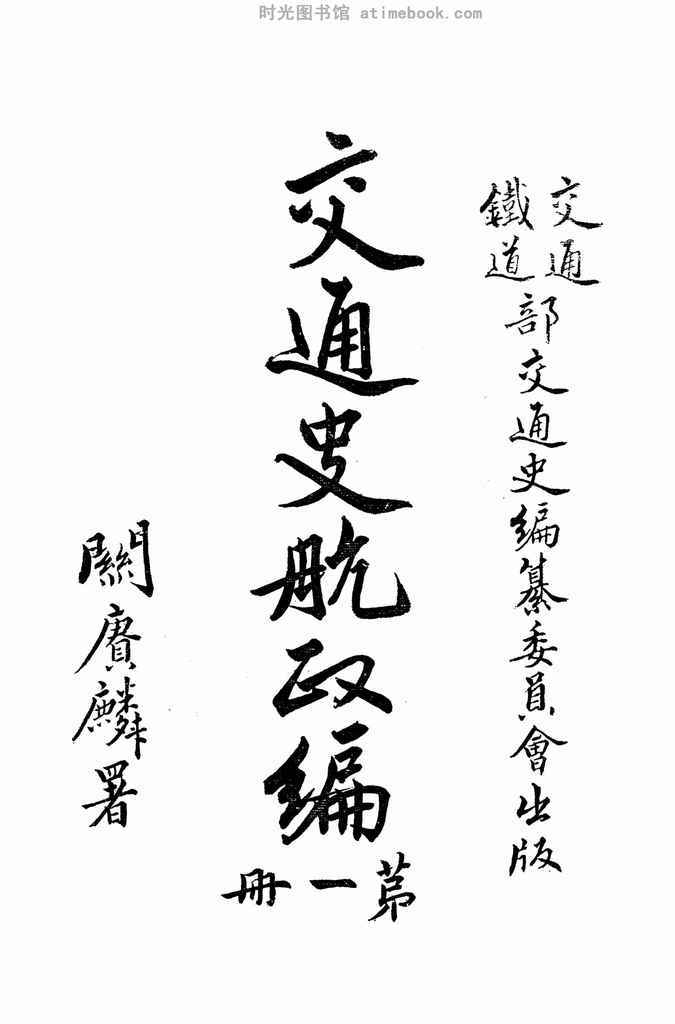 时光图书馆 atimebook.com
交通
鐵道
部交通史編纂委員會出版
交通史航政編
第一冊
關賡麟署